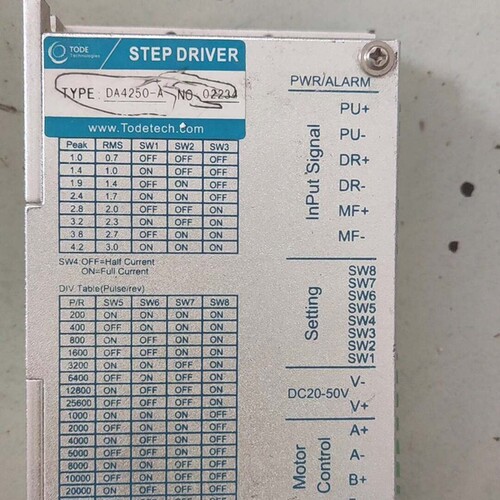 TODE
Technologies
STEP DRIVER
TYPE DA4250-A NO 02234
www.Todetech.Com
Peak RMS SW1 SW2 SW3
1.0 0.7 OFF OFF OFF
1.4 1.0 ON OFF OFF
1.9 1.4 OFF ON OFF
2.4 1.7 ON ON OFF
2.8 2.0 OFF OFF ON
3.2 2.3 ON OFF ON
3.8 2.7 OFF ON ON
4.2 3.0 ON ON ON
SW4:OFF=Half Current
ON=Full Current
DIV Table(Pulse/rev)
P/R SW5 SW6 SW7 SW8
200 ON ON ON ON
400 OFF ON ON ON
800 ON OFF ON ON
1600 OFF OFF ON ON
3200 ON ON OFF ON
6400 OFF ON OFF ON
12800 ON OFF OFF ON
25600 OFF OFF OFF ON
1000 ON ON ON OFF
2000 OFF ON ON OFF
4000 ON OFF ON OFF
5000 OFF OFF ON OFF
8000 ON ON OFF OFF
10000 OFF ON OFF OFF
20000 ON OFF OFF OFF
PWR/ALARM
InPut Signal
PU+
PU-
DR+
DR-
MF+
MF-
Setting
SW8
SW7
SW6
SW5
SW4
SW3
SW2
SW1
DC20-50V
V-
V+
Motor
Control
A+
A-
B+